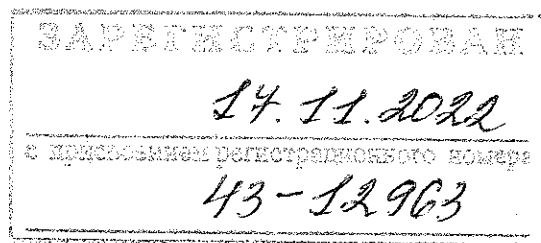 ЗАРЕГИСТРИРОВАН
17.11.2022
с присвоением регистрационного номера
43-12963